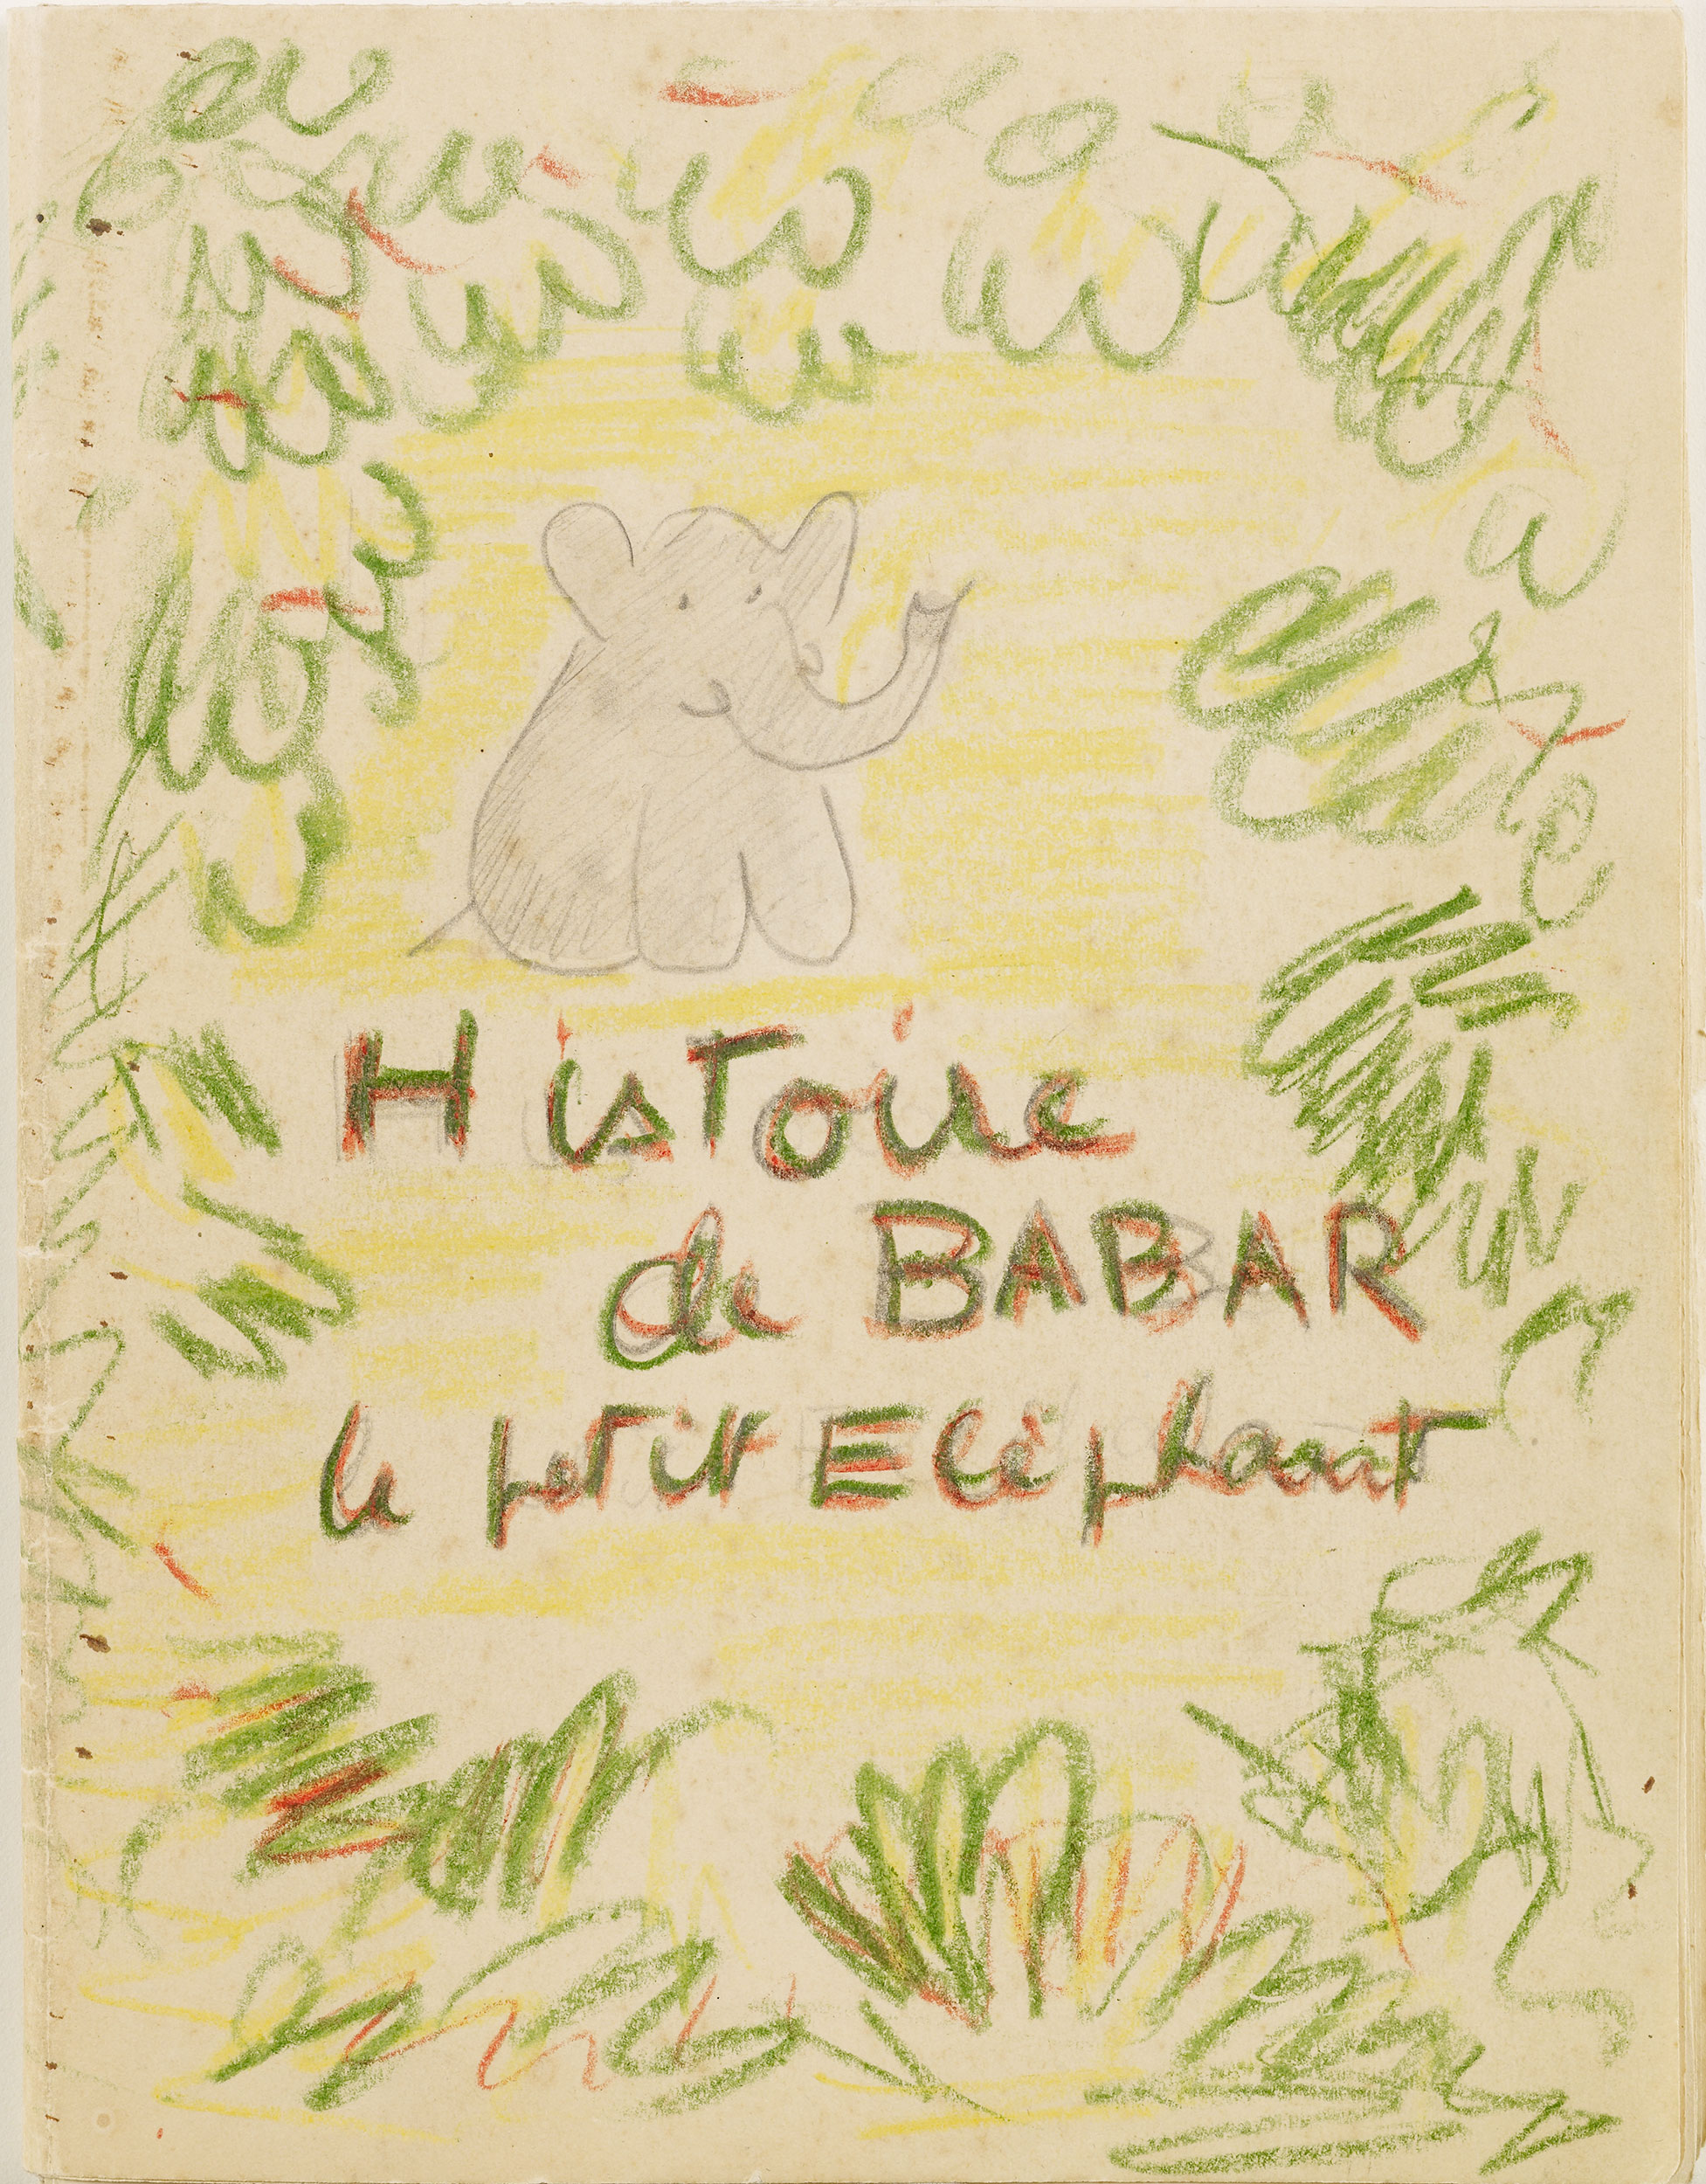 Histoire
de BABAR
le petit Eléphant